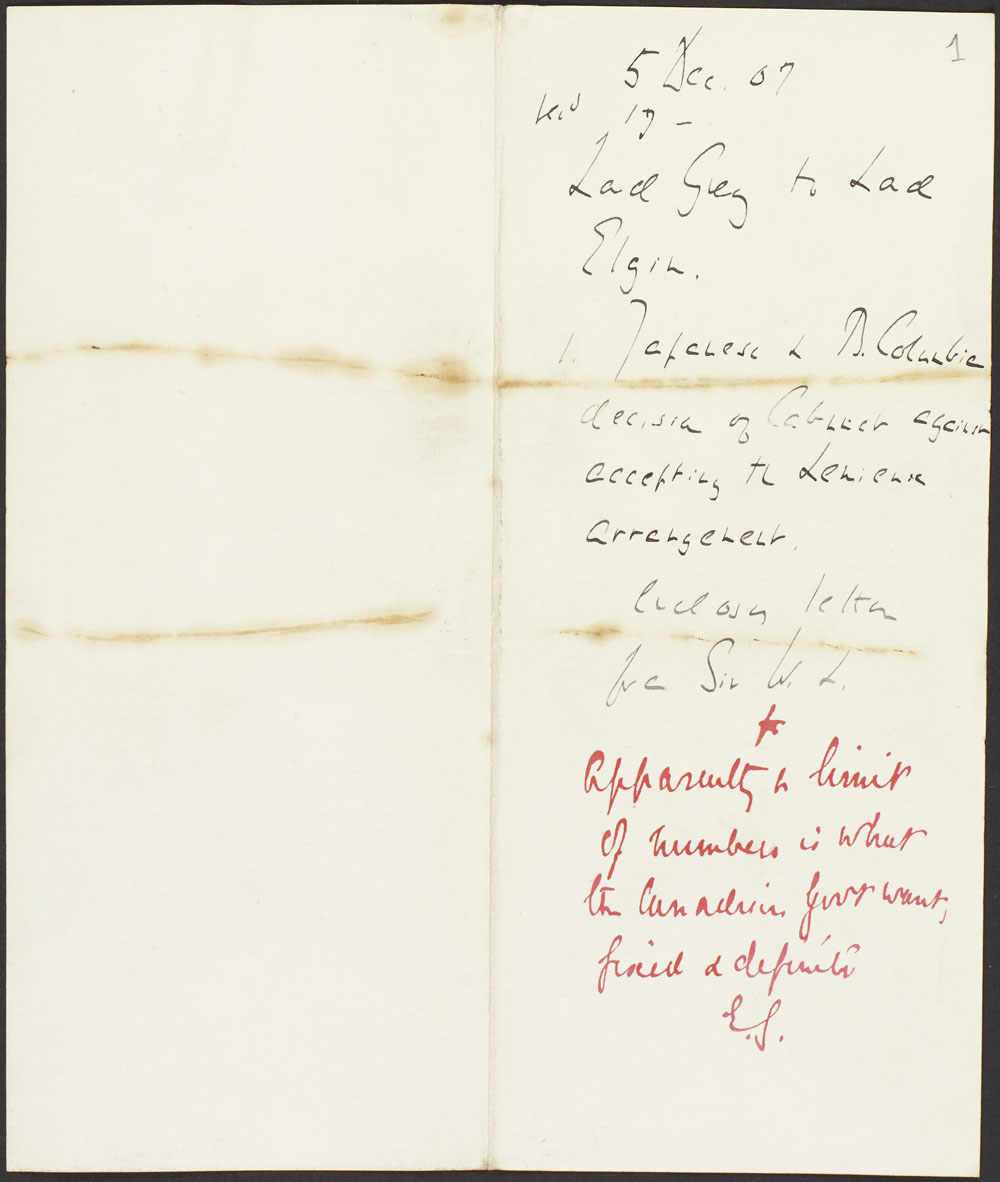 1
5 Dec. 07
Recd 17 -
Lord Grey to Lord
Elgin.
1. Japanese & B. Columbia
decision of Cabinet against
accepting the Lemieux
arrangement.
Encloses letter
from Sir W. L.
Apparently a limit
of numbers is what
the Canadian Govt want,
fixed & definite
E.G.